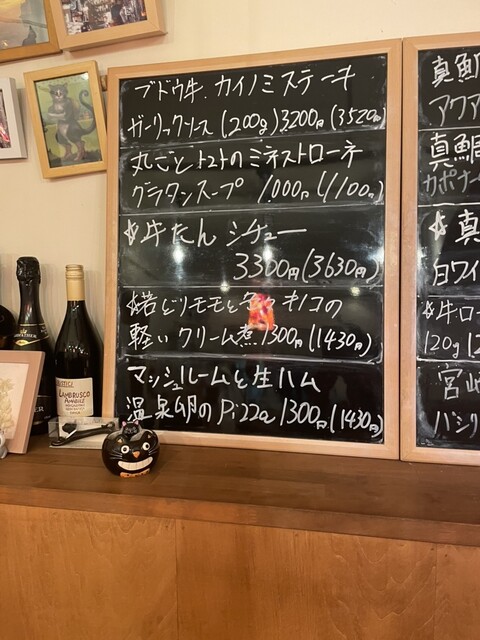 ブドウ牛.カイノミステーキ
ガーリックソース(200g)3,200円(3520円)
丸ごとトマトのミネストローネ
グラタンスープ 1,000円(1100円)
☆牛たんシチュー
3300円(3630円)
☆若どりモモと キノコの
軽いクリーム煮1300円(1430円)
マッシュルームと生ハム
温泉卵のPizza 1300円(1430円)
真鯛
アクア
真鯛
カポナ
☆真
白ワイ
☆牛ロー
120g
宮崎
バシリ
LAMBRUSCO